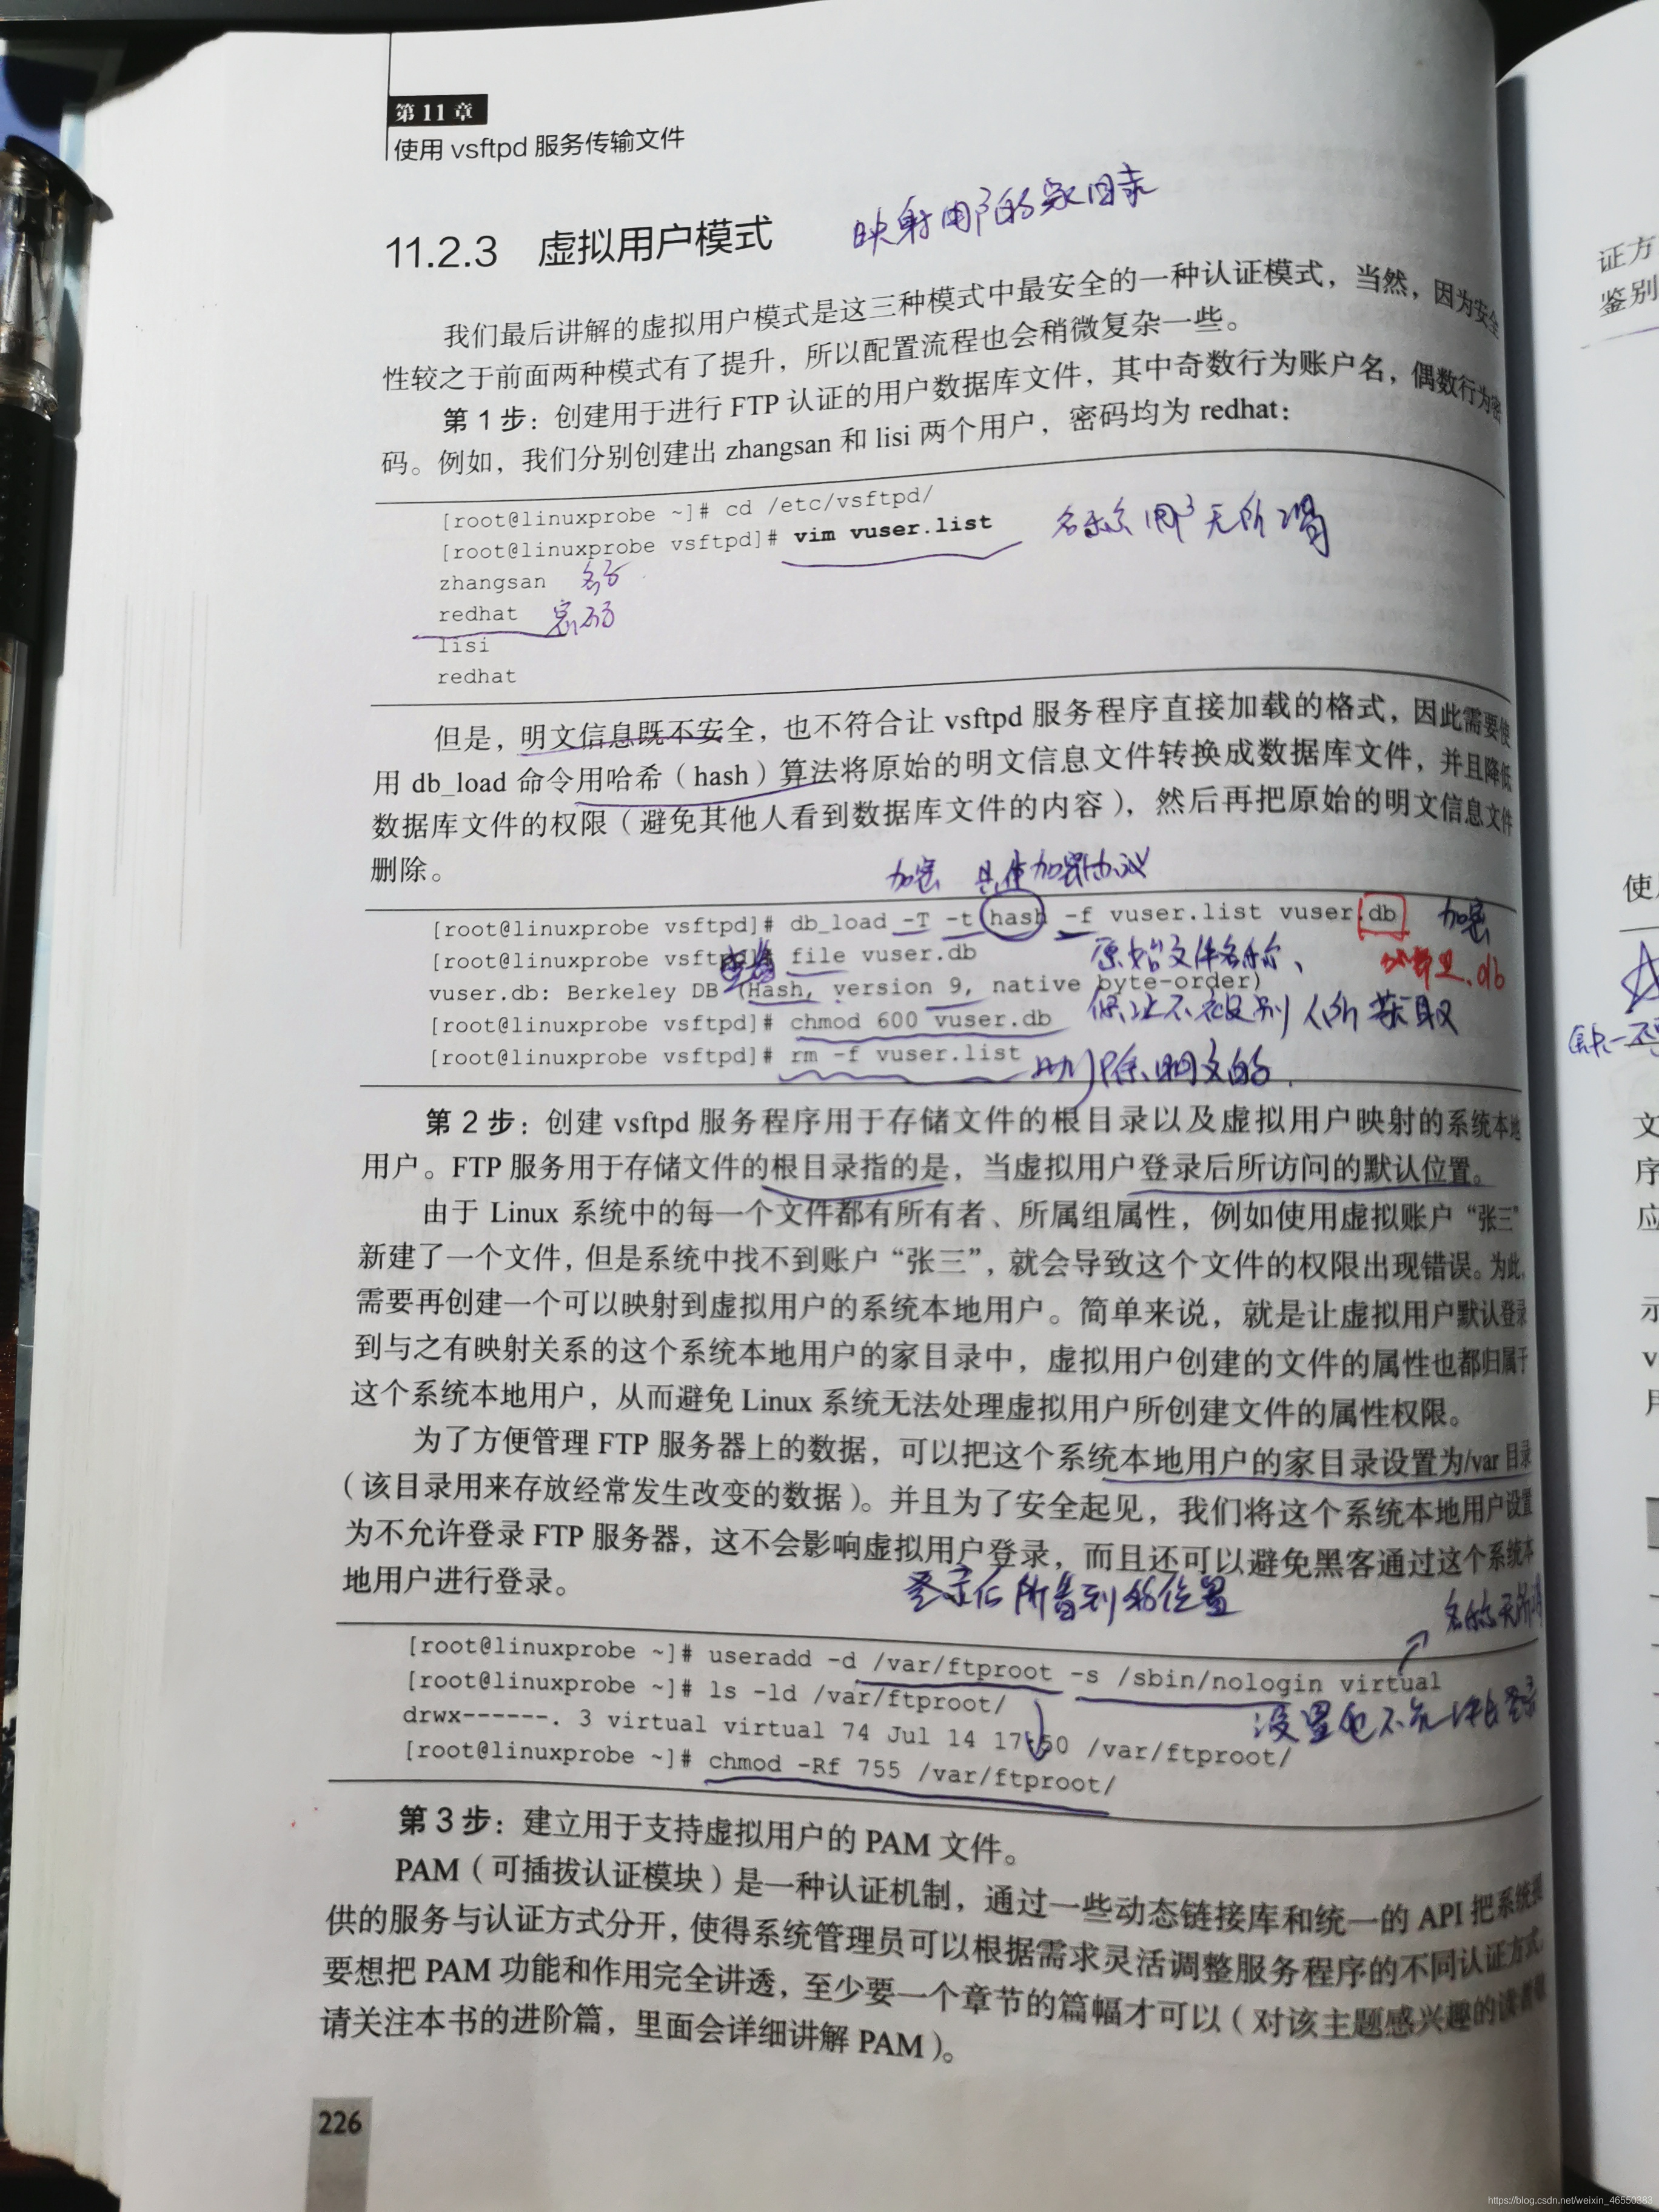 第11章
使用 vsftpd 服务传输文件
11.2.3 虚拟用户模式
映射用户的家目录
我们最后讲解的虚拟用户模式是这三种模式中最安全的一种认证模式，当然，因为安全
性较之于前面两种模式有了提升，所以配置流程也会稍微复杂一些。
第 1 步：创建用于进行 FTP 认证的用户数据库文件，其中奇数行为账户名，偶数行为密
码。例如，我们分别创建出 zhangsan 和 lisi 两个用户，密码均为 redhat：
[root@linuxprobe ~]# cd /etc/vsftpd/
[root@linuxprobe vsftpd]# vim vuser.list
名称 无所谓
zhangsan 名字
redhat 密码
lisi
redhat
但是，明文信息既不安全，也不符合让 vsftpd 服务程序直接加载的格式，因此需要使
用 db_load 命令用哈希（hash）算法将原始的明文信息文件转换成数据库文件，并且降低
数据库文件的权限（避免其他人看到数据库文件的内容），然后再把原始的明文信息文件
删除。
加密 具体加密协议
[root@linuxprobe vsftpd]# db_load -T -t hash -f vuser.list vuser.db 加密
[root@linuxprobe vsftpd]# file vuser.db 原始文件名称、
.db
vuser.db: Berkeley DB (Hash, version 9, native byte-order)
[root@linuxprobe vsftpd]# chmod 600 vuser.db 保证不被别人所获取
[root@linuxprobe vsftpd]# rm -f vuser.list 删除明文的
第 2 步：创建 vsftpd 服务程序用于存储文件的根目录以及虚拟用户映射的系统本地
用户。FTP 服务用于存储文件的根目录指的是，当虚拟用户登录后所访问的默认位置。
由于 Linux 系统中的每一个文件都有所有者、所属组属性，例如使用虚拟账户“张三”
新建了一个文件，但是系统中找不到账户“张三”，就会导致这个文件的权限出现错误。为此，
需要再创建一个可以映射到虚拟用户的系统本地用户。简单来说，就是让虚拟用户默认登录
到与之有映射关系的这个系统本地用户的家目录中，虚拟用户创建的文件的属性也都归属于
这个系统本地用户，从而避免 Linux 系统无法处理虚拟用户所创建文件的属性权限。
为了方便管理 FTP 服务器上的数据，可以把这个系统本地用户的家目录设置为/var 目录
（该目录用来存放经常发生改变的数据）。并且为了安全起见，我们将这个系统本地用户设置
为不允许登录 FTP 服务器，这不会影响虚拟用户登录，而且还可以避免黑客通过这个系统本
地用户进行登录。
登录后所看到的位置
名称无所谓
[root@linuxprobe ~]# useradd -d /var/ftproot -s /sbin/nologin virtual
[root@linuxprobe ~]# ls -ld /var/ftproot/
设置他不允许登录
drwx------. 3 virtual virtual 74 Jul 14 17:50 /var/ftproot/
[root@linuxprobe ~]# chmod -Rf 755 /var/ftproot/
第 3 步：建立用于支持虚拟用户的 PAM 文件。
PAM（可插拔认证模块）是一种认证机制，通过一些动态链接库和统一的 API 把系统提
供的服务与认证方式分开，使得系统管理员可以根据需求灵活调整服务程序的不同认证方式。
要想把 PAM 功能和作用完全讲透，至少要一个章节的篇幅才可以（对该主题感兴趣的读者
请关注本书的进阶篇，里面会详细讲解 PAM）。
226
证方
鉴别
使
文
序
应
示
v
用
https://blog.csdn.net/weixin_46550383